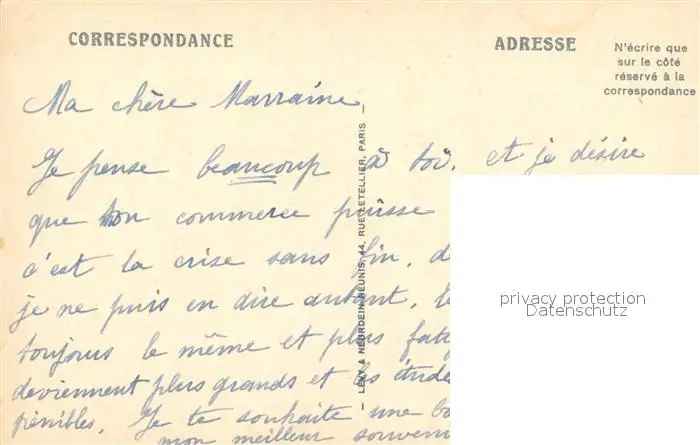 CORRESPONDANCE
ADRESSE
N'écrire que
sur le côté
réservé à la
correspondance
Ma chère Marraine
Je pense beaucoup à toi, et je désire
que ton commerce puisse
c'est la crise sans fin, de
je ne puis en dire autant, le
toujours le même et plus fatig
deviennent plus grands et les étude
pénibles. Je te souhaite une bo
mon meilleur souveni
— LÉVY & NEURDEIN RÉUNIS, 44, RUE LETELLIER, PARIS —
privacy protection
Datenschutz